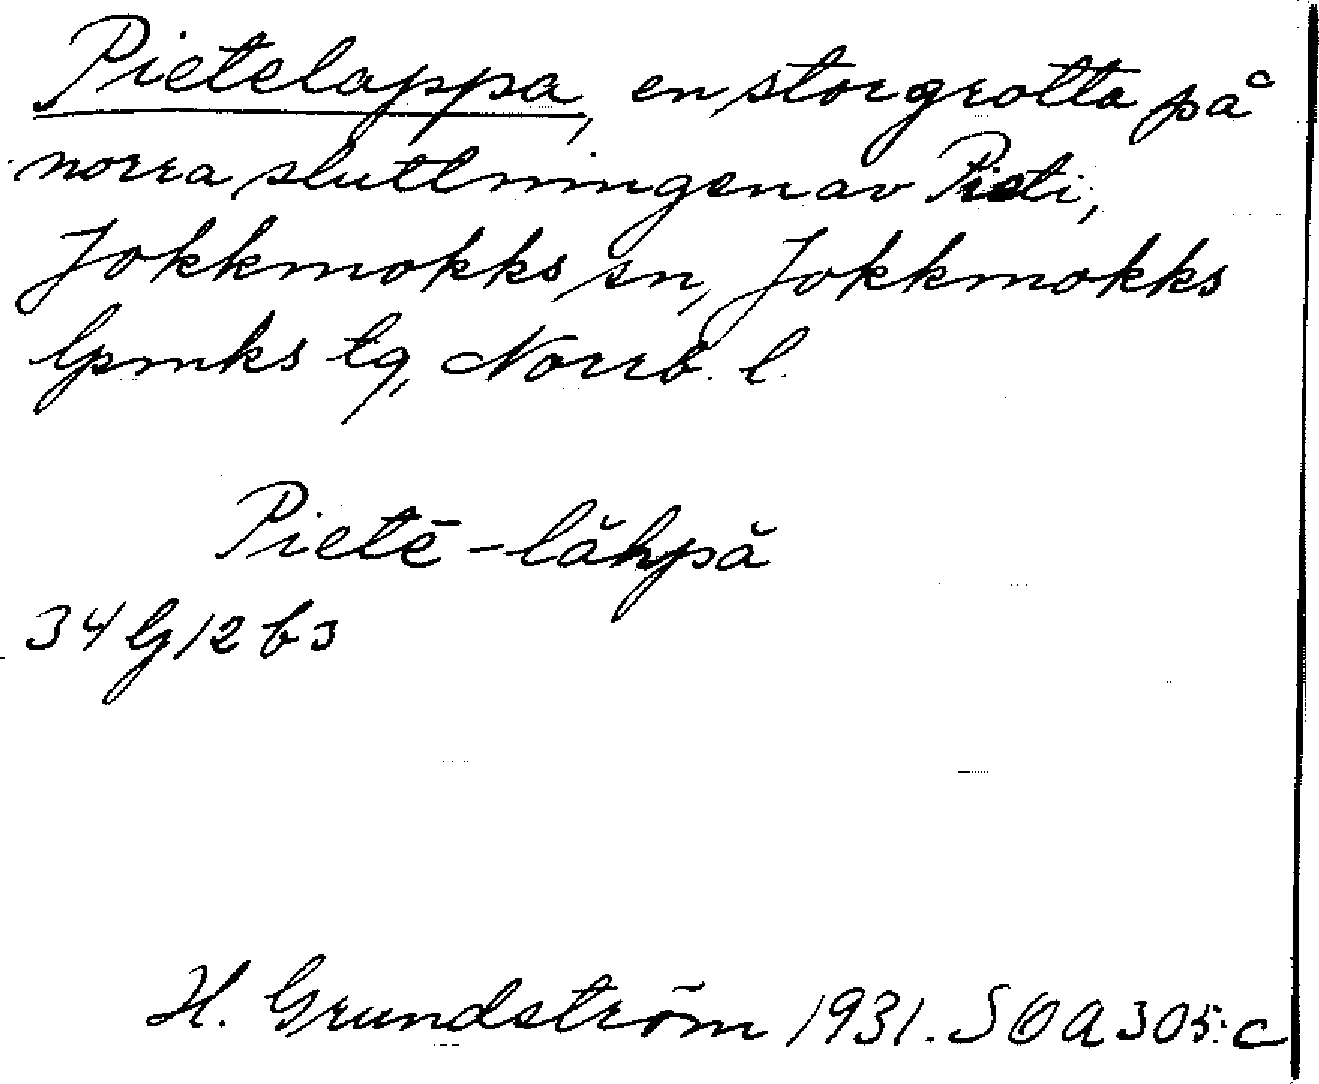 Pietelappa, en stor grotta på
norra sluttningen av Pieti,
Jokkmokks sn, Jokkmokks
lpmks tg, Norrb. l.
Pietē-lăhpă
34 G 12 b 3
H. Grundström 1931. SOA 305:c